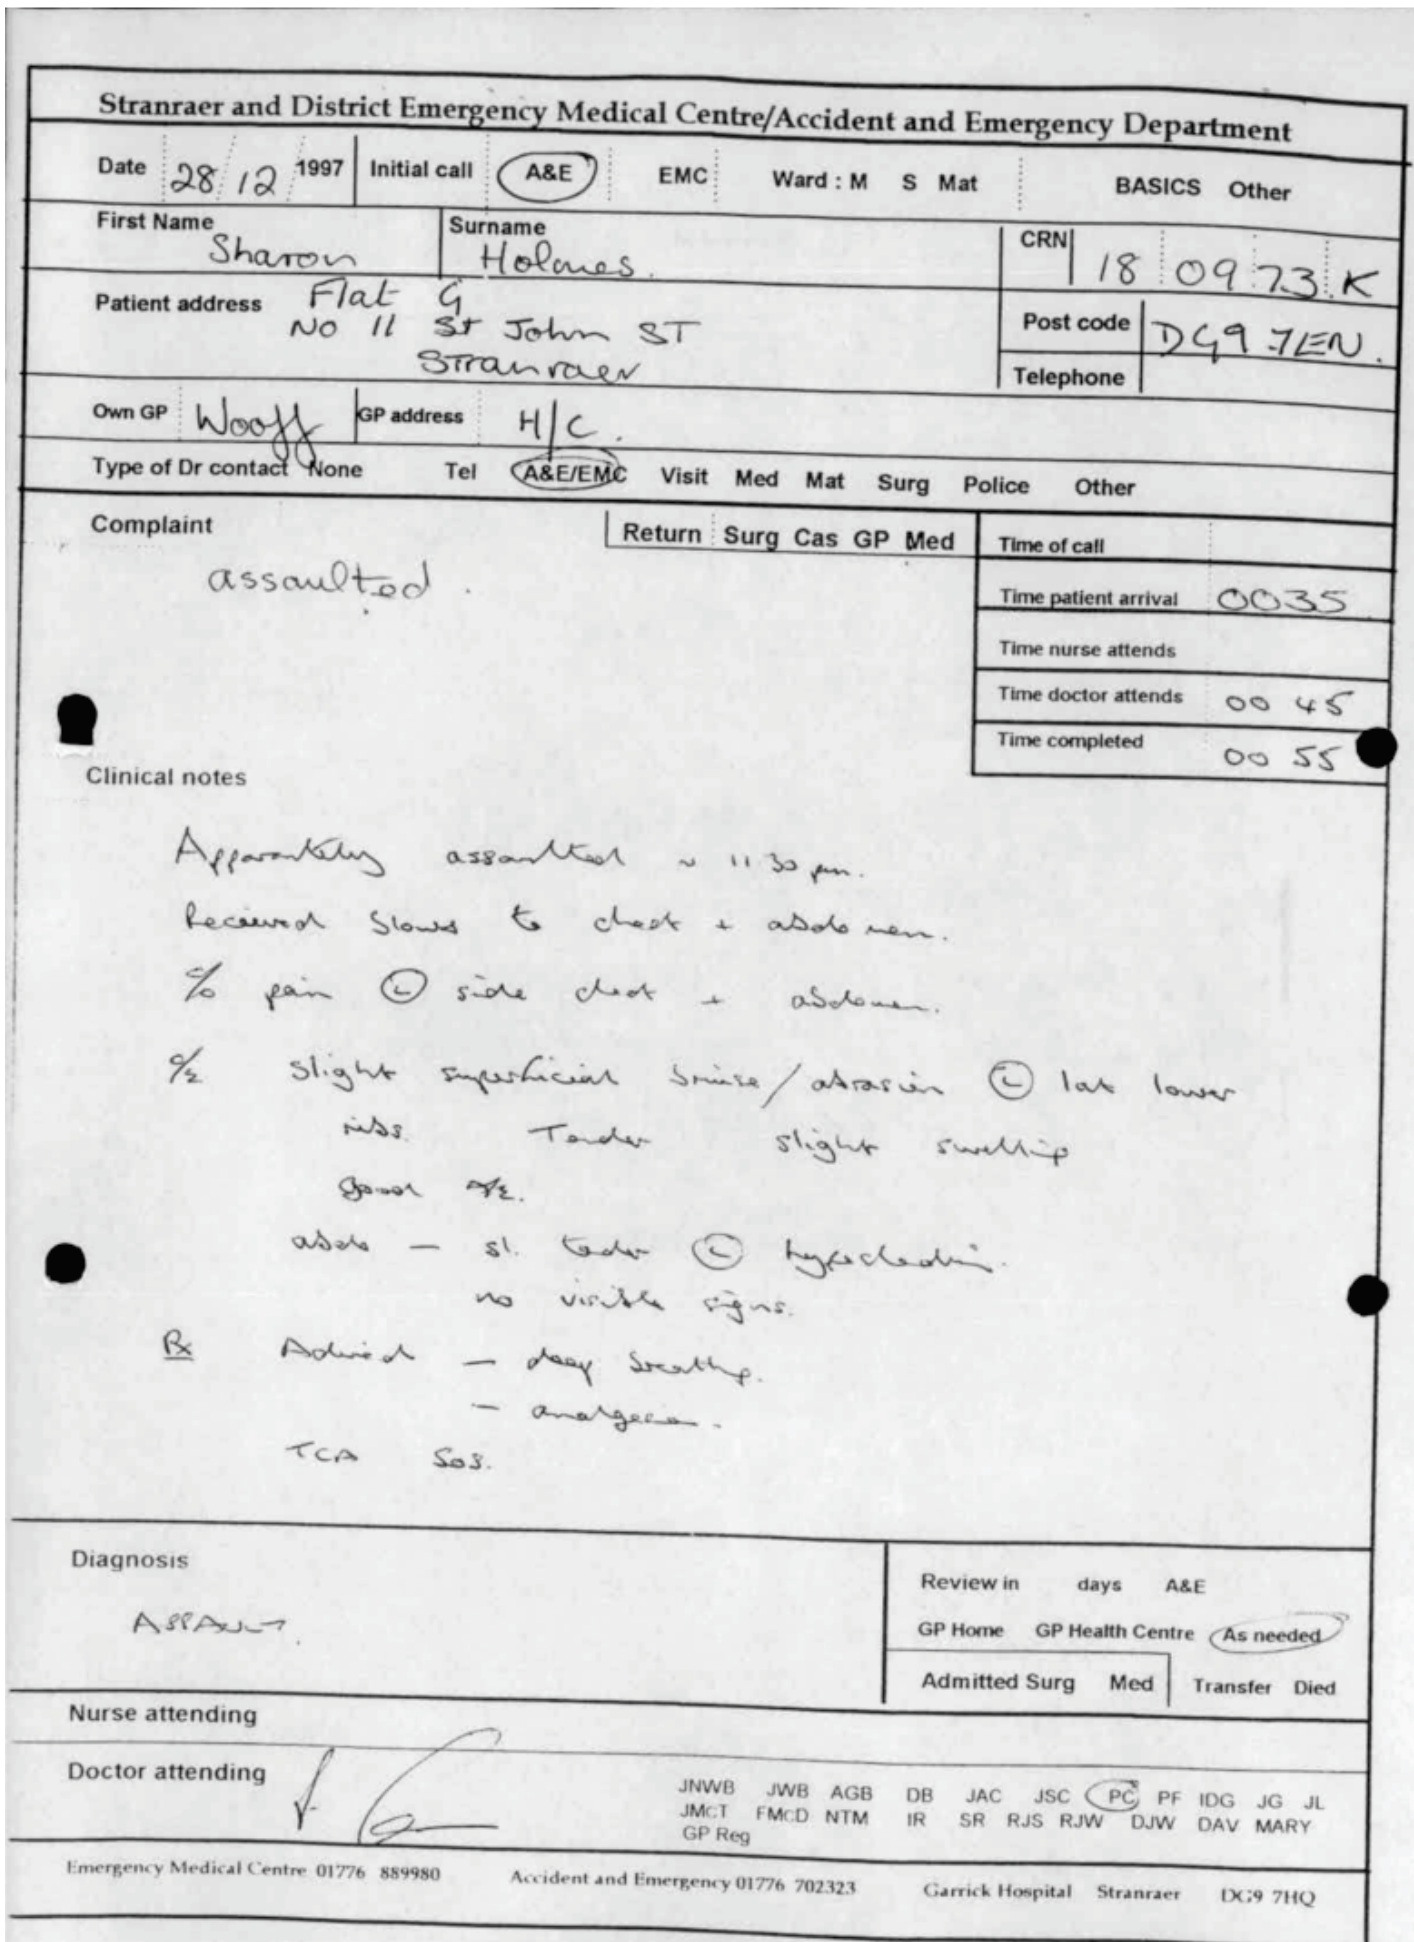 Stranraer and District Emergency Medical Centre/Accident and Emergency Department
Date 28/12 1997 Initial call A&E EMC Ward : M S Mat BASICS Other
First Name Sharon Surname Holmes. CRN 18 09 73 K
Patient address Flat G
No 11 St John ST
Stranraer
Post code DG9 7EN.
Telephone
Own GP Wooff GP address H/C.
Type of Dr contact None Tel A&E/EMC Visit Med Mat Surg Police Other
Complaint
Return Surg Cas GP Med
assaulted.
Time of call
Time patient arrival 0035
Time nurse attends
Time doctor attends 00 45
Time completed 00 55
Clinical notes
Apparently assaulted ~ 11 30 pm.
Received blows to chest + abdomen.
c/o pain (L) side chest + abdomen.
O/E slight superficial bruise/abrasion (L) lat lower
ribs. Tender slight swelling
good A/E.
abdo — sl. tender (L) hypochondrium.
no visible signs.
Rx Advised — deep breathing.
- analgesia.
TCA SOS.
Diagnosis
ASSAULT.
Review in days A&E
GP Home GP Health Centre As needed
Admitted Surg Med Transfer Died
Nurse attending
Doctor attending
JNWB JWB AGB DB JAC JSC PC PF IDG JG JL
JMCT FMCD NTM IR SR RJS RJW DJW DAV MARY
GP Reg
Emergency Medical Centre 01776 889980 Accident and Emergency 01776 702323 Garrick Hospital Stranraer DG9 7HQ